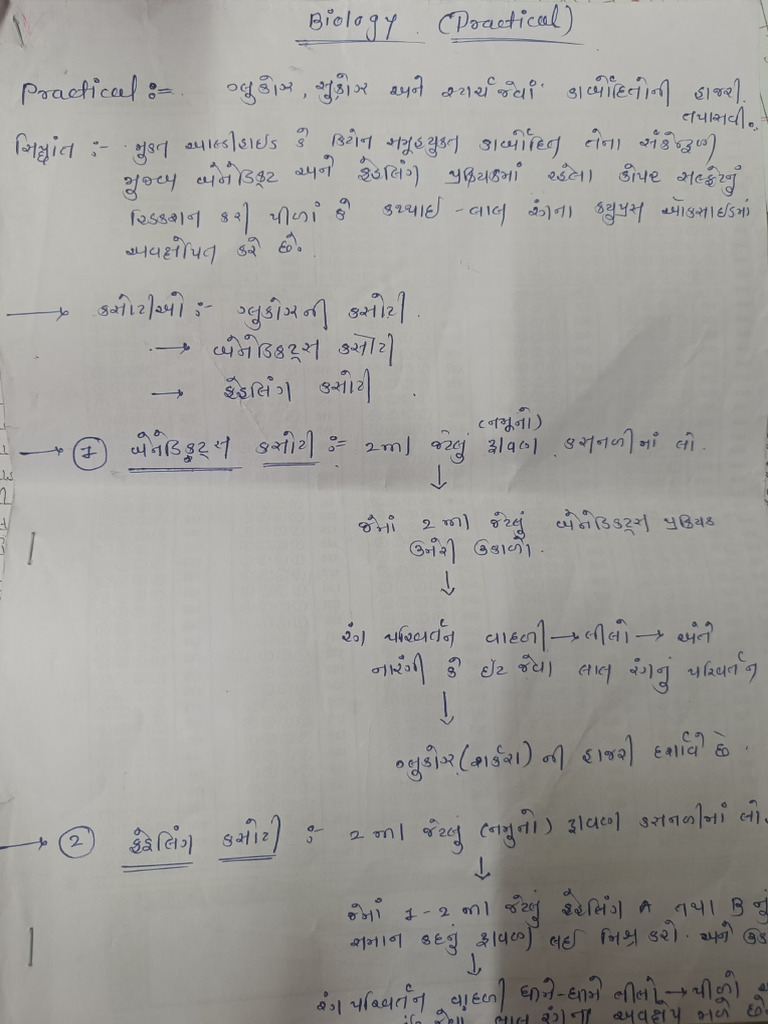 Biology (Practical)
Practical :- ગ્લુકોઝ, સુક્રોઝ અને સ્ટાર્ચ જેવાં કાર્બોદિતોની હાજરી
તપાસવી.
સિદ્ધાંત :- મુક્ત આલ્ડીહાઇડ કે કિટોન સમૂહયુક્ત કાર્બોદિત તેના સંકેન્દ્રણ
મુજબ બેનેડિક્ટ અને ફેહલિંગ પ્રક્રિયકમાં રહેલા કોપર સલ્ફેટનું
રિડક્શન કરી પીળાં કે કથ્થાઇ-લાલ રંગના ક્યુપ્રસ ઓક્સાઇડમાં
અવક્ષેપિત કરે છે.
→ કસોટીઓ :- ગ્લુકોઝની કસોટી.
→ બેનેડિક્ટ્સ કસોટી
→ ફેહલિંગ કસોટી.
(નમૂનો)
→ 1 બેનેડિક્ટ્સ કસોટી :- 2 ml જેટલું દ્રાવણ કસનળીમાં લો.
↓
જેમાં 2 ml જેટલું બેનેડિક્ટ્સ પ્રક્રિયક
ઉમેરી ઉકાળો.
↓
રંગ પરિવર્તન વાદળી → લીલો → અંતે
નારંગી કે ઇંટ જેવા લાલ રંગનું પરિવર્તન
↓
ગ્લુકોઝ (શર્કરા) ની હાજરી દર્શાવે છે.
→ 2 ફેહલિંગ કસોટી :- 2 ml જેટલું (નમુનો) દ્રાવણ કસનળીમાં લો.
↓
જેમાં 1-2 ml જેટલું ફેહલિંગ A તથા B નું
સમાન કદનું દ્રાવણ લઇ મિશ્ર કરો. અને
↓
રંગ પરિવર્તન વાદળી ધીમે-ધીમે લીલો → પીળો
જેવા લાલ રંગના અવક્ષેપ મળે છે.